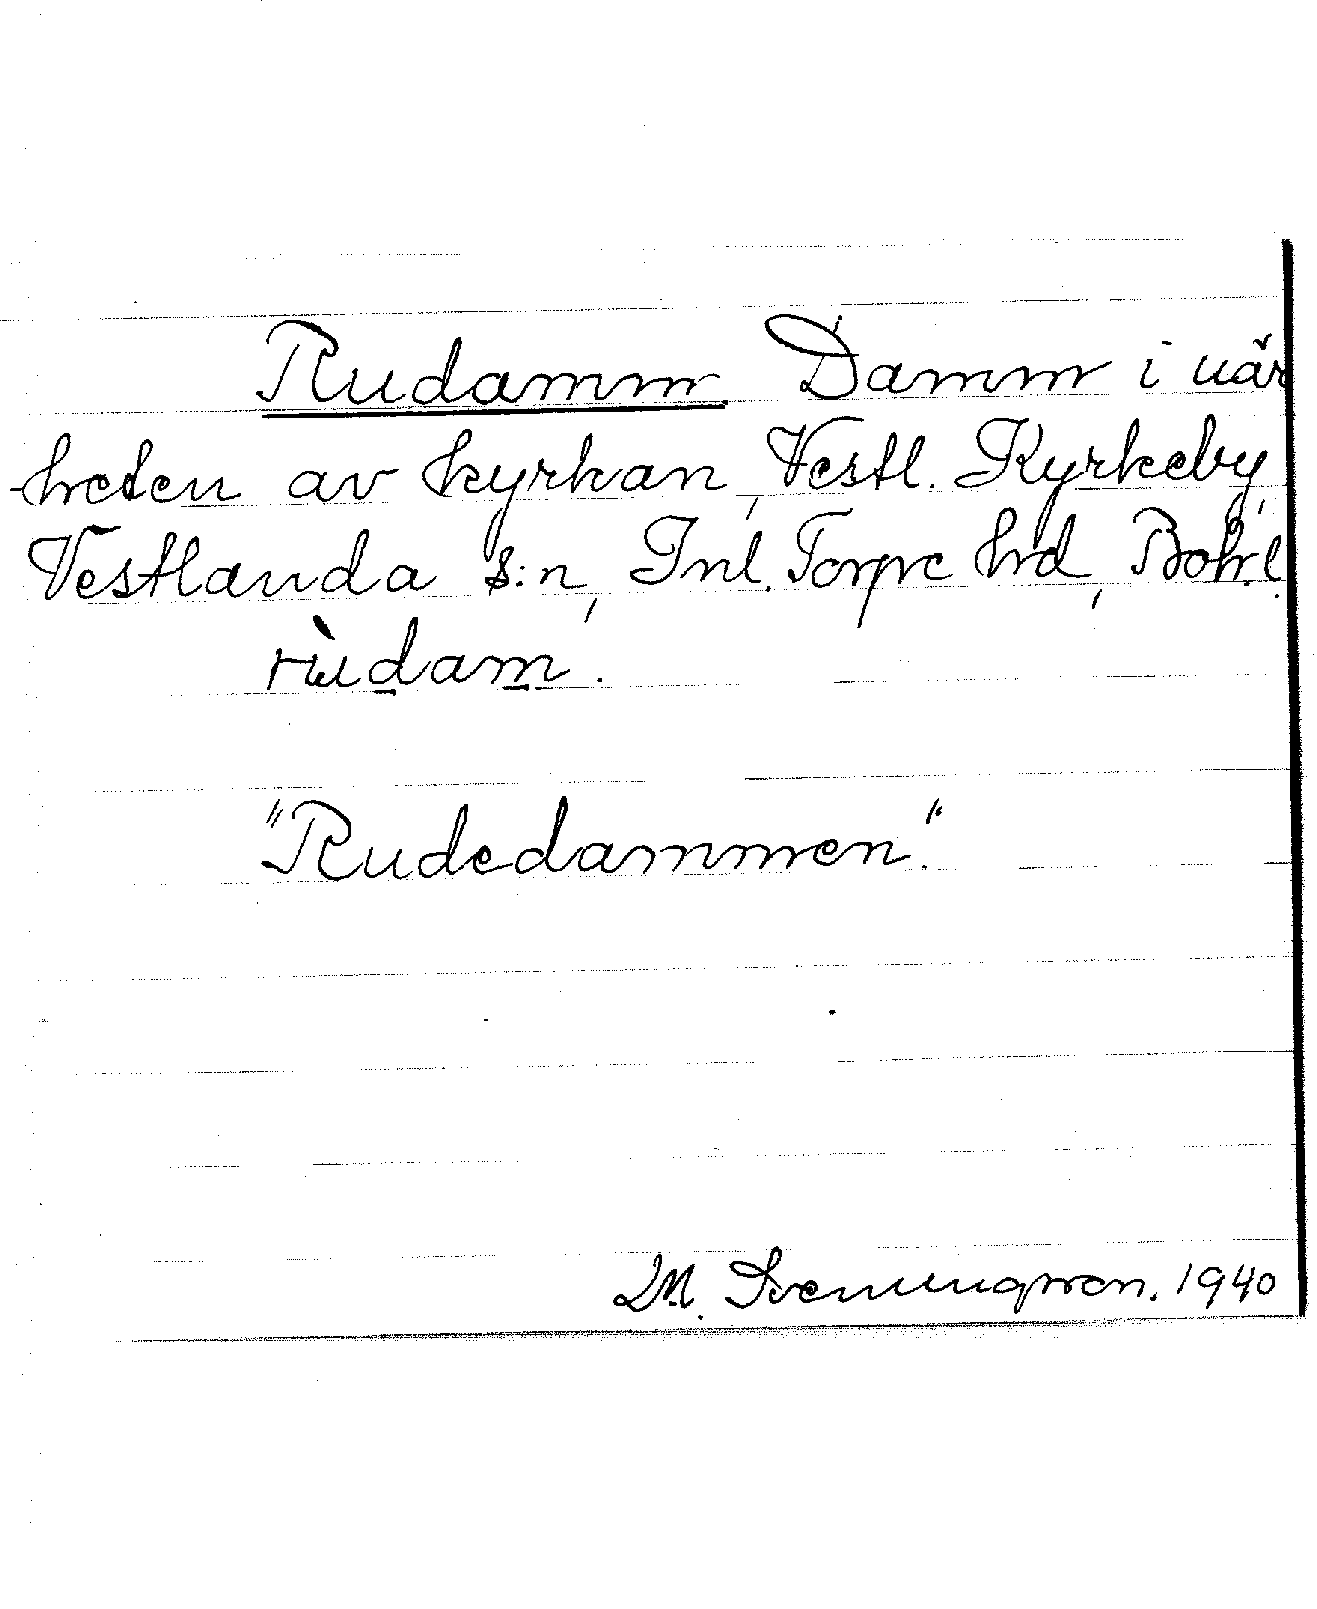 Rudamm. Damm i när
-heten av kyrkan, Vestl. Kyrkeby,
Vestlanda s:n, Inl. Torpe hd, Bohl.
rùdam.
"Rudedammen."
M. Svenungsson. 1940